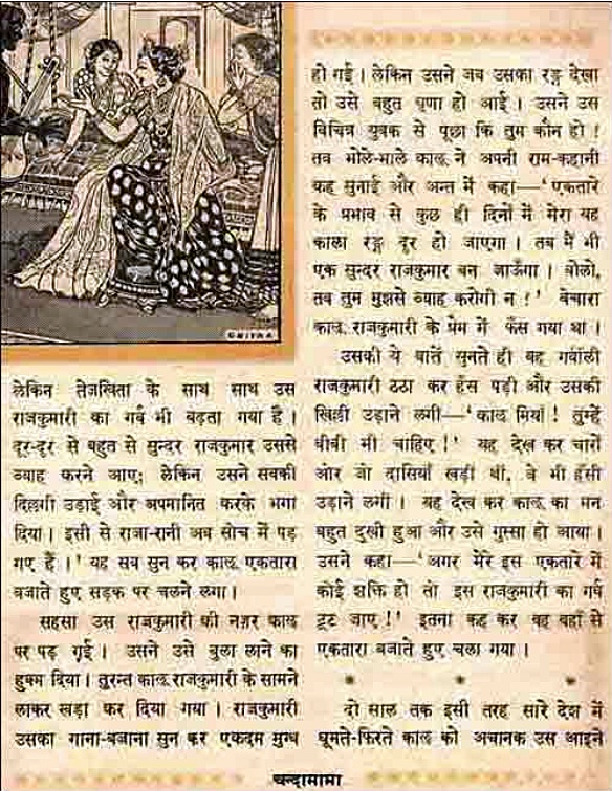 CHITRA
लेकिन तेजस्विता के साथ साथ उस
राजकुमारी का गर्व भी बढ़ता गया है।
दूर-दूर से बहुत से सुन्दर राजकुमार उससे
ब्याह करने आए; लेकिन उसने सबकी
दिल्लगी उड़ाई और अपमानित करके भगा
दिया। इसी से राजा-रानी अब सोच में पड़
गए हैं।' यह सब सुन कर कालू एकतारा
बजाते हुए सड़क पर चलने लगा।
सहसा उस राजकुमारी की नज़र कालू
पर पड़ गई। उसने उसे बुला लाने का
हुक्म दिया। तुरन्त कालू राजकुमारी के सामने
लाकर खड़ा कर दिया गया। राजकुमारी
उसका गाना-बजाना सुन कर एकदम मुग्ध
हो गई। लेकिन उसने जब उसका रङ्ग देखा
तो उसे बहुत घृणा हो आई। उसने उस
विचित्र युवक से पूछा कि तुम कौन हो!
तब भोले-भाले कालू ने अपनी राम-कहानी
कह सुनाई और अन्त में कहा—'एकतारे
के प्रभाव से कुछ ही दिनों में मेरा यह
काला रङ्ग दूर हो जाएगा। तब मैं भी
एक सुन्दर राजकुमार बन जाऊँगा। बोलो,
तब तुम मुझसे ब्याह करोगी न!' बेचारा
कालू राजकुमारी के प्रेम में फँस गया था।
उसकी ये बातें सुनते ही वह गर्वीली
राजकुमारी ठठा कर हँस पड़ी और उसकी
खिल्ली उड़ाने लगी—'कालू मियाँ! तुम्हें
बीबी भी चाहिए!' यह देख कर चारों
ओर जो दासियाँ खड़ी थीं, वे भी हँसी
उड़ाने लगीं। यह देख कर कालू का मन
बहुत दुखी हुआ और उसे गुस्सा हो आया।
उसने कहा—'अगर मेरे इस एकतारे में
कोई शक्ति हो तो इस राजकुमारी का गर्व
टूट जाए!' इतना कह कर वह वहाँ से
एकतारा बजाते हुए चला गया।
* * *
दो साल तक इसी तरह सारे देश में
घूमते-फिरते कालू को अचानक उस आइने
चन्दामामा